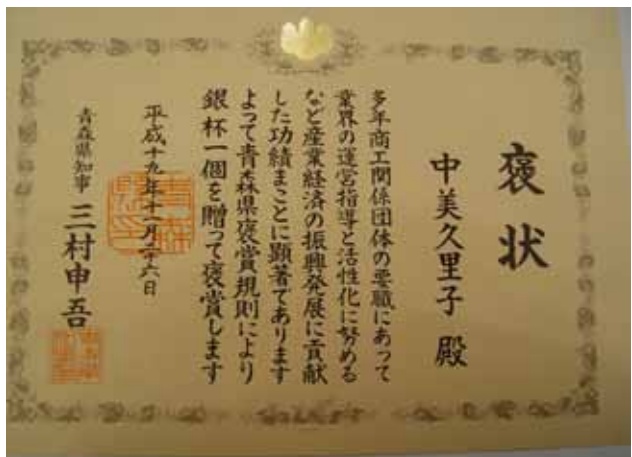 褒状
中美久里子 殿
多年商工関係団体の要職にあって
業界の運営指導と活性化に努める
など産業経済の振興発展に貢献
した功績まことに顕著であります
よって青森県褒賞規則により
銀杯一個を贈って褒賞します
平成十九年十一月二十六日
青森県知事 三村申吾